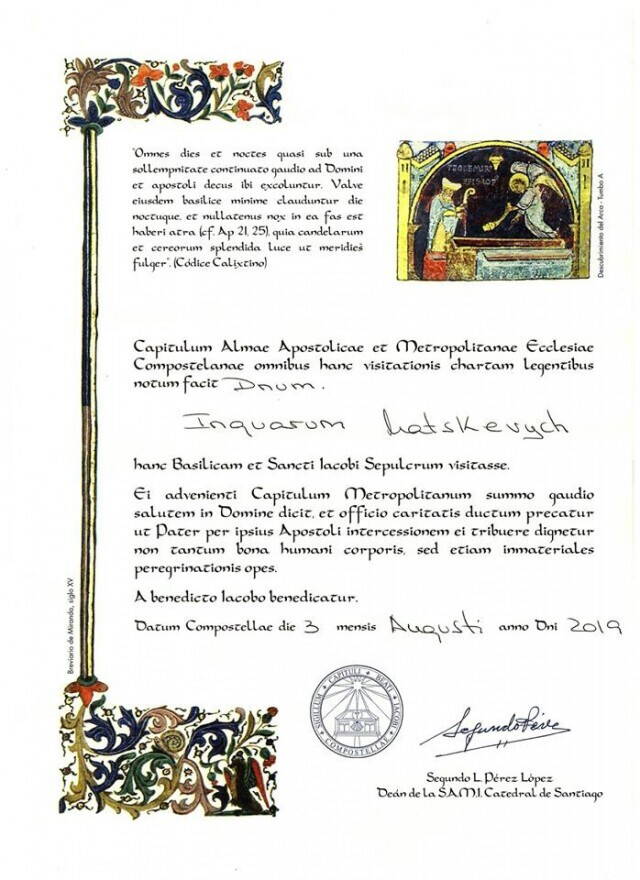 "Omnes dies et noctes quasi sub una
sollempnitate continuato gaudio ad Domini
et apostoli decus ibi excoluntur. Valve
eiusdem basilice minime clauduntur die
noctuque, et nullatenus nox in ea fas est
haberi atra (cf. Ap 21, 25), quia candelarum
et cereorum splendida luce ut meridies
fulget". (Códice Calixtino)
Descubrimiento del Arca - Tumbo A
Capitulum Almae Apostolicae et Metropolitanae Ecclesiae
Compostelanae omnibus hanc visitationis chartam legentibus
notum facit Dnum.
Inguarum Matskevych
hanc Basilicam et Sancti Iacobi Sepulcrum visitasse.
Ei advenienti Capitulum Metropolitanum summo gaudio
salutem in Domine dicit, et officio caritatis ductum precatur
ut Pater per ipsius Apostoli intercessionem ei tribuere dignetur
non tantum bona humani corporis, sed etiam inmateriales
peregrinationis opes.
A benedicto Iacobo benedicatur.
Datum Compostellae die 3 mensis Augusti anno Dni 2019
Breviario de Miranda, siglo XV
SIGILLUM CAPITULI BEATI IACOBI COMPOSTELLAE
Segundo Pérez
Segundo L. Pérez López
Deán de la S.A.M.I. Catedral de Santiago